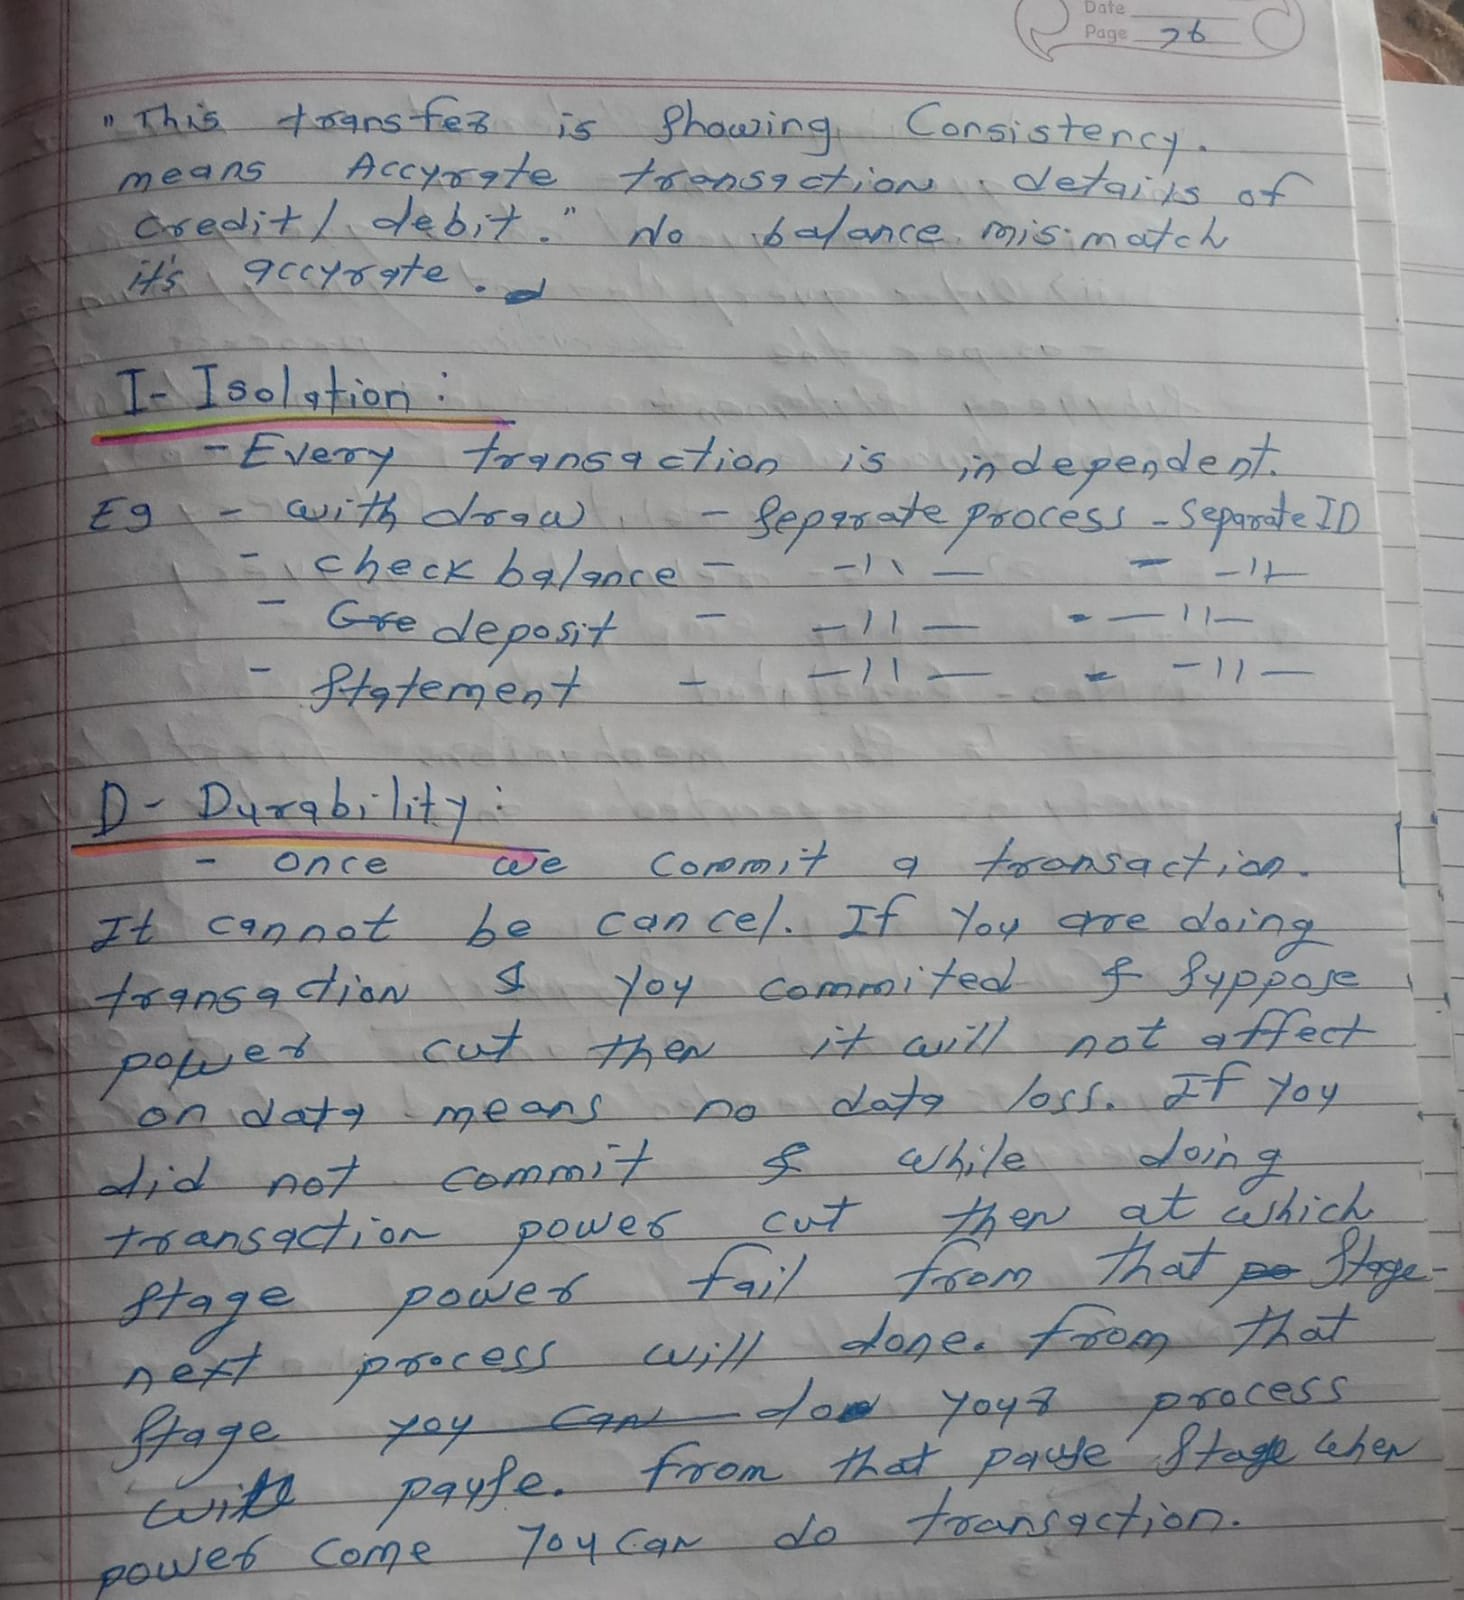 Date
Page 76
"This transfer is showing Consistency.
means Accurate transaction details of
credit/debit." No balance mismatch
it's accurate.
I- Isolation :
- Every transaction is independent.
Eg - withdraw - Separate process - Separate ID
- check balance - -11- - -11-
- deposit - -11- - -11-
- Statement - -11- - -11-
D- Durability :
- Once we commit a transaction.
It cannot be cancel. If you are doing
transaction & you commited & suppose
power cut then it will not affect
on data means no data loss. If you
did not commit & while doing
transaction power cut then at which
stage power fail from that stage
next process will done. From that
stage your process
will pause. From that pause stage when
power come you can do transaction.